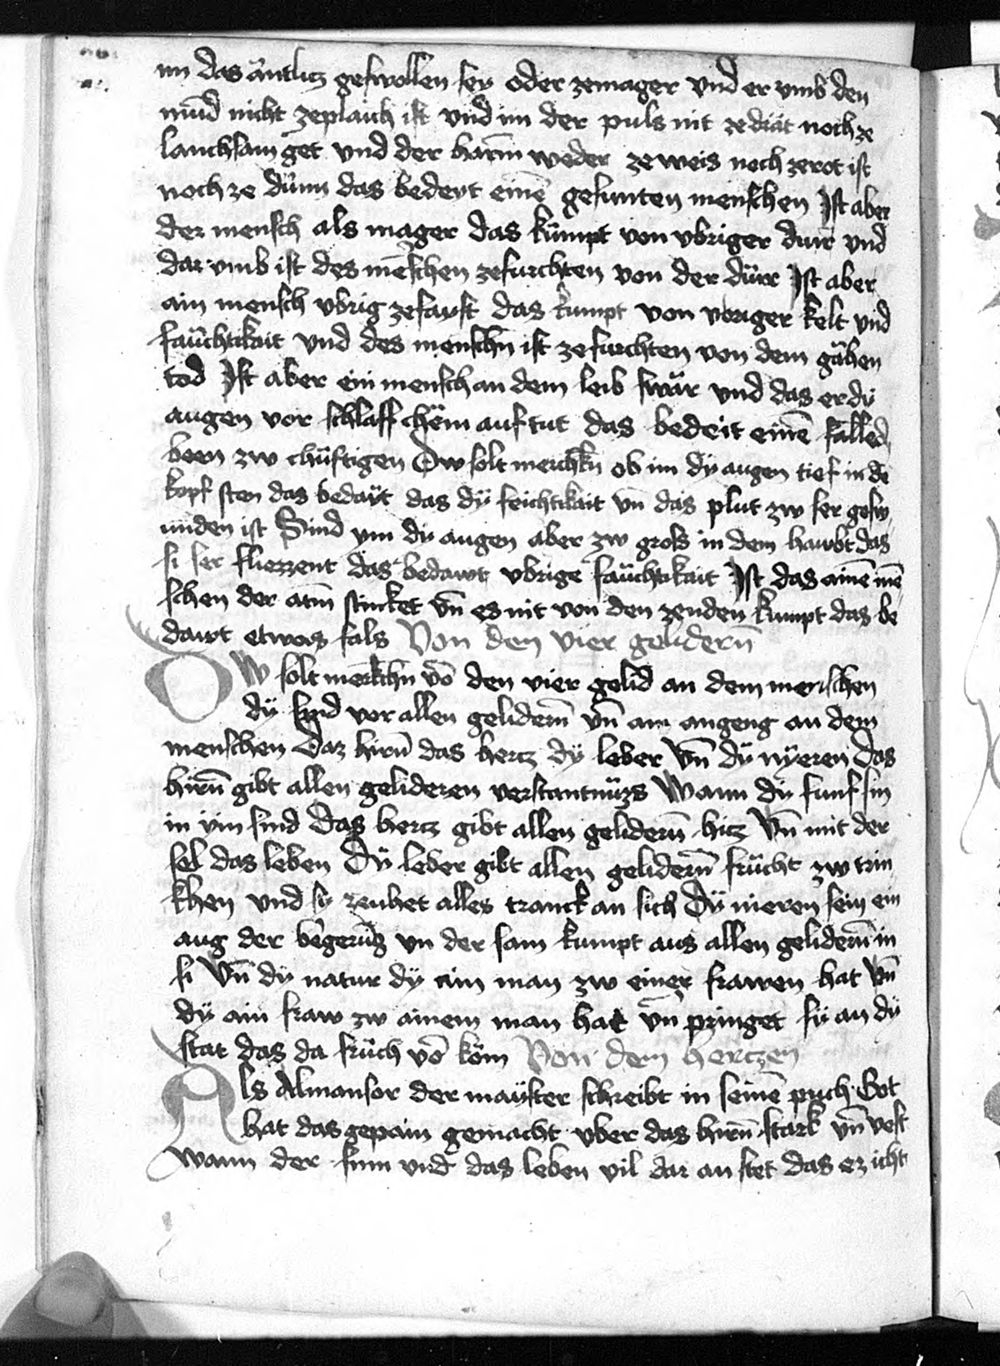 im das antlitz geswollen sey oder zemager vnd er vmb den
mūd nicht zeplaich ist vnd im der puls nit ze drät noch ze
lanchsam get vnd der harm̄ weder ze weis nech zerot ist
noch ze dünn das bedeut einē gesunten menschen Ist aber
der mensch als mager das kumpt von vbriger dürr vnd
dar vmb ist des mēschen zefurchten von der dürr Ist aber
ain mensch vbrig zefayst das kumpt von vbriger kelt vnd
faüchtikait vnd des menschn̄ ist zefurchten von dem gähen
tod Ist aber ein mensch an dem leib swär vnd das er dy
augen vor schlaff chäm auf tut das bedeit einē falled
been zw chüftigen Dw solt merchkn̄ ob im dy augen tief in dē
kopf sten das bedäyt das dy feichtikait vn̄ das plut zw ser gesw
unden ist Sind ym dy augen aber zw groß in dem hawbt das
si ser flierzent das bedawt vbrige faüchtikait Ist das ainē mē
schen der atm̄ stincket vn̄ es nit von den zenden kumpt das be
dawt etwas fals Von den vier gelidern̄
DW solt merkchn̄ vō den vier gelid an dem menschen
dy sind vor allen gelidern̄ vn̄ am angeng an dem
menschen Daz hirn̄ das hertz dy leber vn̄ dy nyeren Das
hirn̄ gibt allen gelideren verstantnüzs Wann dy funf sin
in ym sind Das hertz gibt allen gelidern̄ hitz vn̄ mit der
sel das leben Dy leber gibt allen gelidern̄ frücht zw trin
khen vnd sy zeuhet alles tranck an sich Dy nieren sein ein
aug der begerūg vn der sam kumpt aus allen gelidern̄ in
si vn̄ dy natur dy ain man zw einer frawen hat vn̄
dy ain fraw zw ainem man hat vn̄ pringet sy an dy
stat das da früch vō köm Von dem hertzen
Als Almansor der mayster schreibt in seinē puch Got
hat das gepain gemacht vber das hirn̄ stark vn̄ vest
wann der sinn vnd das leben vil dar an stet das ez icht